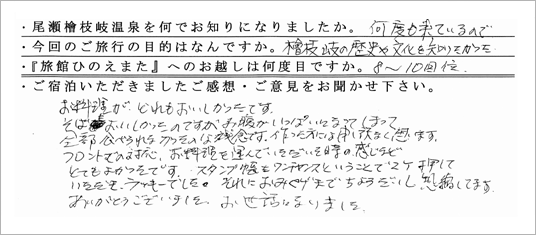 ・尾瀬檜枝岐温泉を何でお知りになりましたか。 何度も来ているので
・今回のご旅行の目的はなんですか。 檜枝岐の歴史や文化を知りたかった
・『旅館ひのえまた』へのお越しは何度目ですか。 8～10回位
・ご宿泊いただきましたご感想・ご意見をお聞かせ下さい。
お料理が、どれもおいしかったです。
そばもおいしかったのですが、お腹がいっぱいになってしまって
全部食べられなかったのは残念です。作った方には申し訳なく思います。
フロントでの対応、お料理を運んでいただいた時の感じなど
とてもよかったです。スタンプ帳もワンチャンスということで2ヶ押して
いただき、ラッキーでした。それにおみやげまでちょうだいし恐縮してます。
ありがとうございました。お世話になりました。